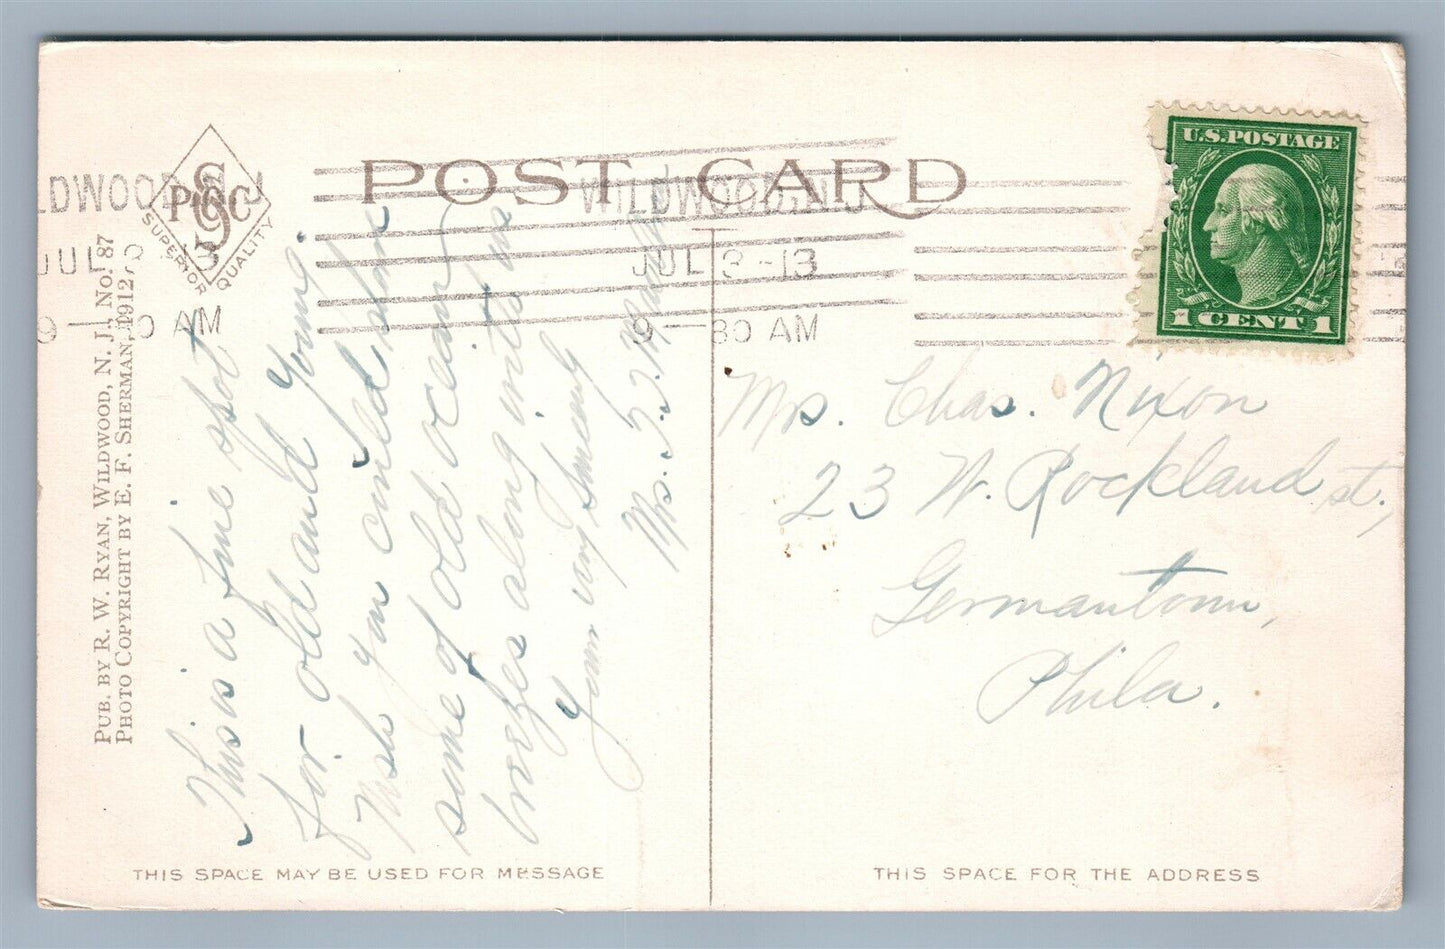 POST CARD
WILDWOOD, N. J.
JUL 3 - 13
9 — 30 AM
WILDWOOD, N. J.
JUL 3 - 13
9 — 30 AM
U.S. POSTAGE
1 CENT 1
SUPERIOR QUALITY
PUB. BY R. W. RYAN, WILDWOOD, N. J., NO. 87
PHOTO COPYRIGHT BY E. F. SHERMAN, 1912.
This is a fine spot
for old and young.
Wish you could stick
some of old ocean
brezes along into us
Yours very Sincerely
Mrs. J. J.
Mrs. Chas. Nixon
23 W. Rockland st.,
Germantown,
Phila.
THIS SPACE MAY BE USED FOR MESSAGE
THIS SPACE FOR THE ADDRESS